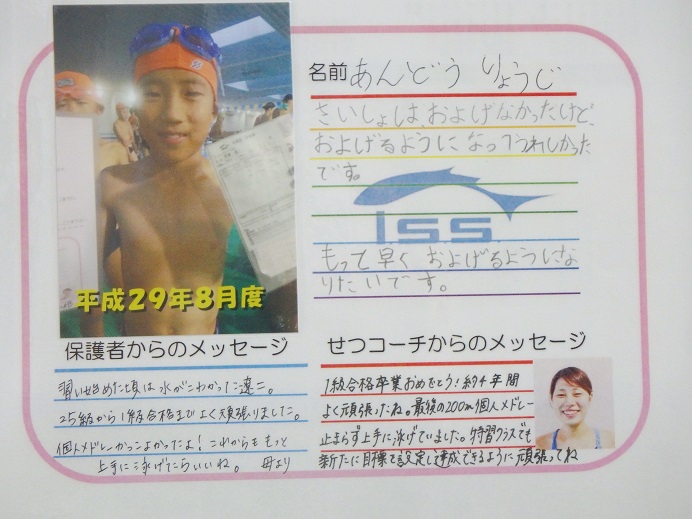 名前 あんどう りょうじ
さいしょは、およげなかったけど、
およげるようになってうれしかった
です。
ISS
もって早く およげるようにな
りたいです。
平成29年8月度
保護者からのメッセージ
習い始めた頃は水がこわかった遼二。
25級から1級合格までよく頑張りました。
個人メドレーかっこよかったよ！これからももっと
上手に泳げたらいいね。 母より
せつコーチからのメッセージ
1級合格卒業おめでとう！約4年間
よく頑張ったね。最後の200m個人メドレー
止まらず上手に泳げていました。特習クラスでも
新たに目標を設定して達成できるように頑張ってね